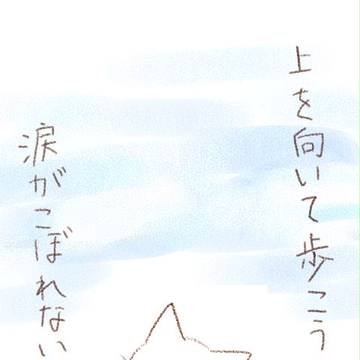 上を向いて歩こう
涙がこぼれない